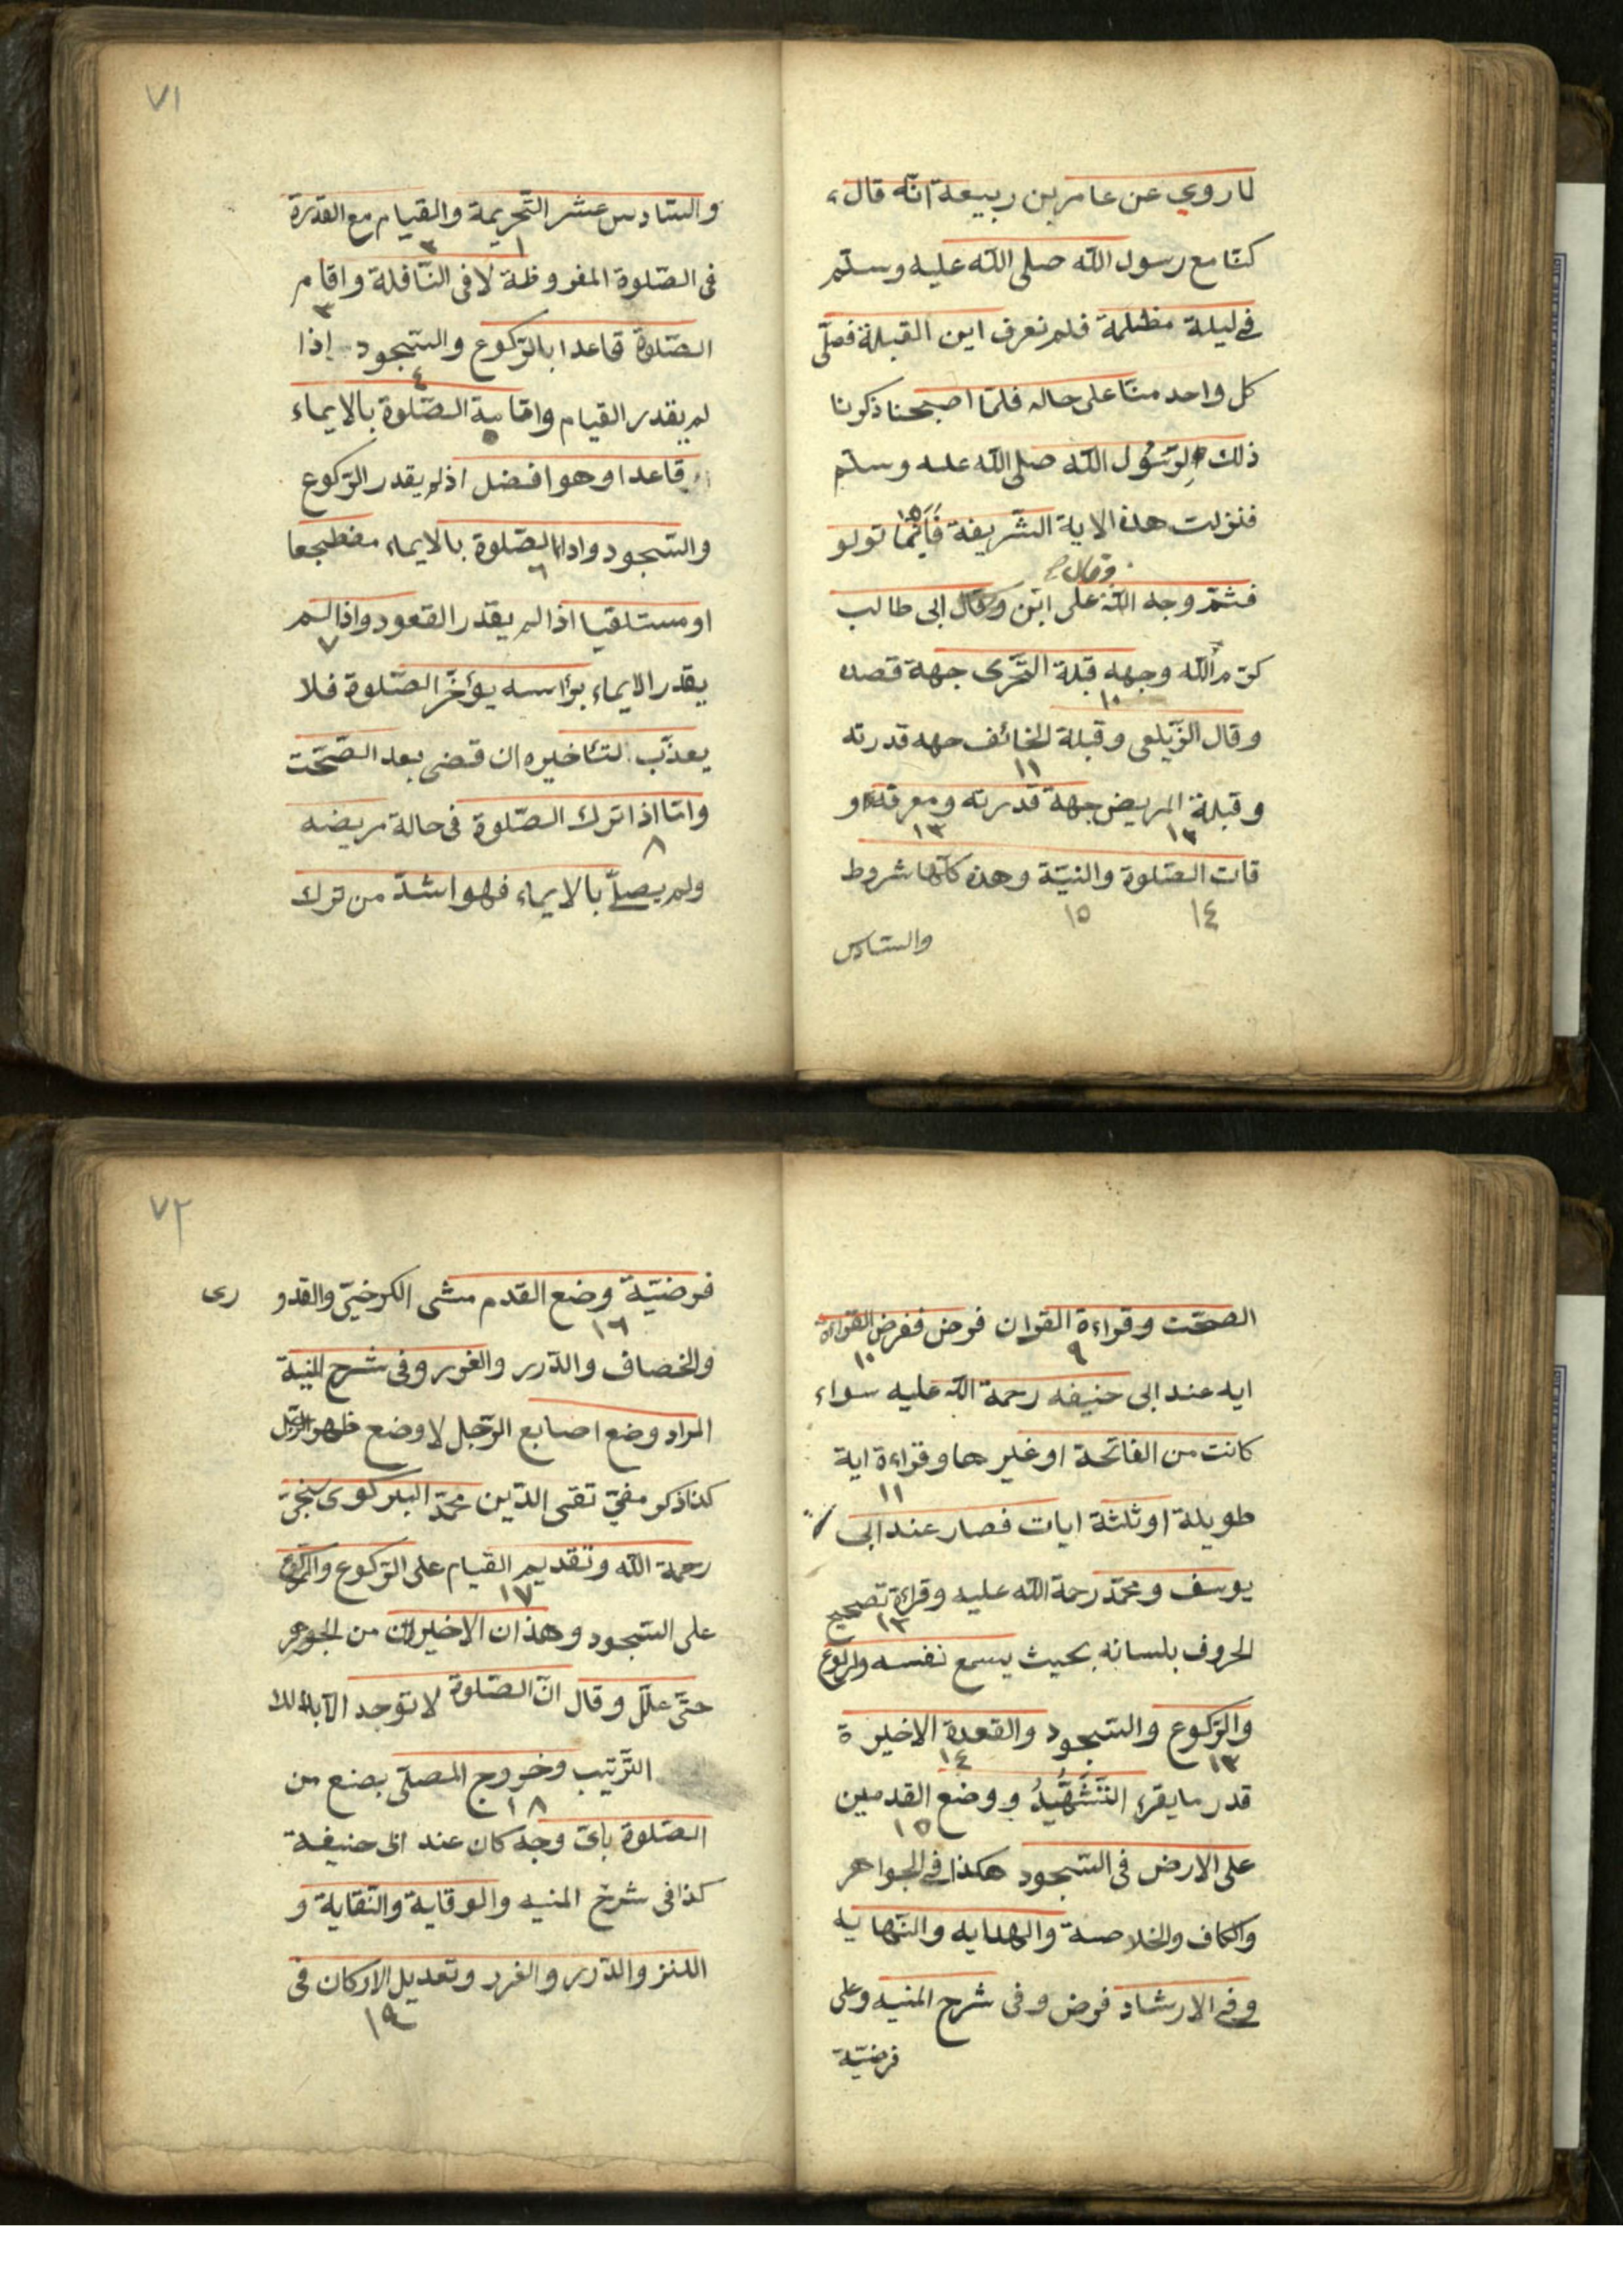 لما روي عن عامر بن ربيعة انّه قال
كنّا مع رسول الله صلى الله عليه وسلّم
فے ليلة مظلمة فلم نعرف اين القبلة فصلّى
كل واحد منّا على حاله فلمّا اصبحنا ذكرنا
ذلك لرسُول الله صلى الله عليه وسلّم
فنزلت هذه الاية الشّريفة فَاَيْنَمَا تولو
١٥
وقال
فثمّ وجه الله على ابن ابى طالب
كرّم الله وجهه قبلة التّحرّى جهة قصده
١٠
وقال الزّيلعى وقبلة الخائف جهه قدرته
١١
وقبلة المريض جهة قدرته ومعرفة او
١٢ ١٣
قات الصّلوة والنيّة وهذه كلّها شروط
١٤ ١٥
والسّادس
٧١
والسّادس عشر التّحريمة والقيام مع القدرة
١ ٢
فى الصّلوة المفروظة لا فى النّافلة واقام
٣
الصّلوة قاعدا بالرّكوع والسّجود إذا
٤
لم يقدر القيام واقامة الصّلوة بالايماء
٥
قاعدا وهو افضل اذ لم يقدر الرّكوع
والسّجود واداء الصّلوة بالايماء مضطجعا
٦
او مستلقيا اذا لم يقدر القعود واذا لم
٧
يقدر الايماء برأسه يؤخّر الصّلوة فلا
يعذّب لتأخيره ان قضى بعد الصّحّت
وامّا اذا ترك الصّلوة فى حالة مريضه
٨
ولم يصلّ بالايماء فهو اشدّ من ترك
الصحّت وقراءة القران فرض ففرض القراءة
٩ ١٠
ايه عند ابى حنيفه رحمة الله عليه سواء
كانت من الفاتحة او غيرها وقراءة اية
١١
طويلة او ثلثة ايات قصار عند ابى
يوسف ومحمّد رحمة الله عليه وقراءة تصحيح
١٢
الحروف بلسانه بحيث يسمع نفسه
والرّكوع والسّجود والقعدة الاخيرة
١٣ ١٤
قدر ما يقرء التَّشَهُّدُ ووضع القدمين
١٥
على الارض فى السّجود هكذا فے الجواهر
والكاف والخلاصة والهدايه والنّهايه
وفے الارشاد فرض وفى شرح المنيه وعلى
فرضيّة
٧٢
فرضيّة وضع القدم مشى الكرخىّ والقدورى
١٦
والخصاف والدّرر والغرر وفى شرح المنية
المراد وضع اصابع الرّجل لا وضع ظهر الرّجل
كذا ذكر مفتى تقى الدّين محمّد البركوى
رحمة الله وتقديم القيام على الرّكوع والرّكوع
١٧
على السّجود وهذان الاخيران من الجوهر
حتّى علّل وقال انّ الصّلوة لا توجد الّا بذلك
التّرتيب وخروج المصلّى بصنع من
١٨
الصّلوة باىّ وجه كان عند ابى حنيفة
كذا فى شرح المنيه والوقاية والنّقاية و
الكنز والدّرر والغرر وتعديل الاركان فى
١٩